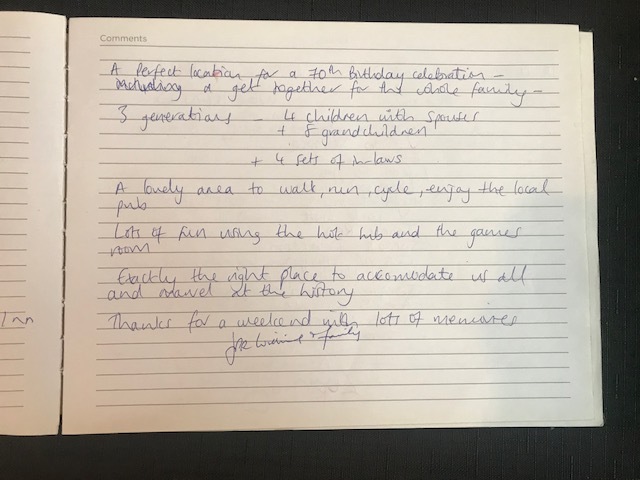 Comments
A Perfect location for a 70th Birthday celebration –
including a get together for the whole family –
3 generations – 4 children with spouses
+ 8 grandchildren
+ 4 sets of in-laws
A lovely area to walk, run, cycle, enjoy the local
pub
Lots of fun using the hot tub and the games
room
Exactly the right place to accomodate us all
and marvel at the history
Thanks for a weekend with lots of memories
+ family